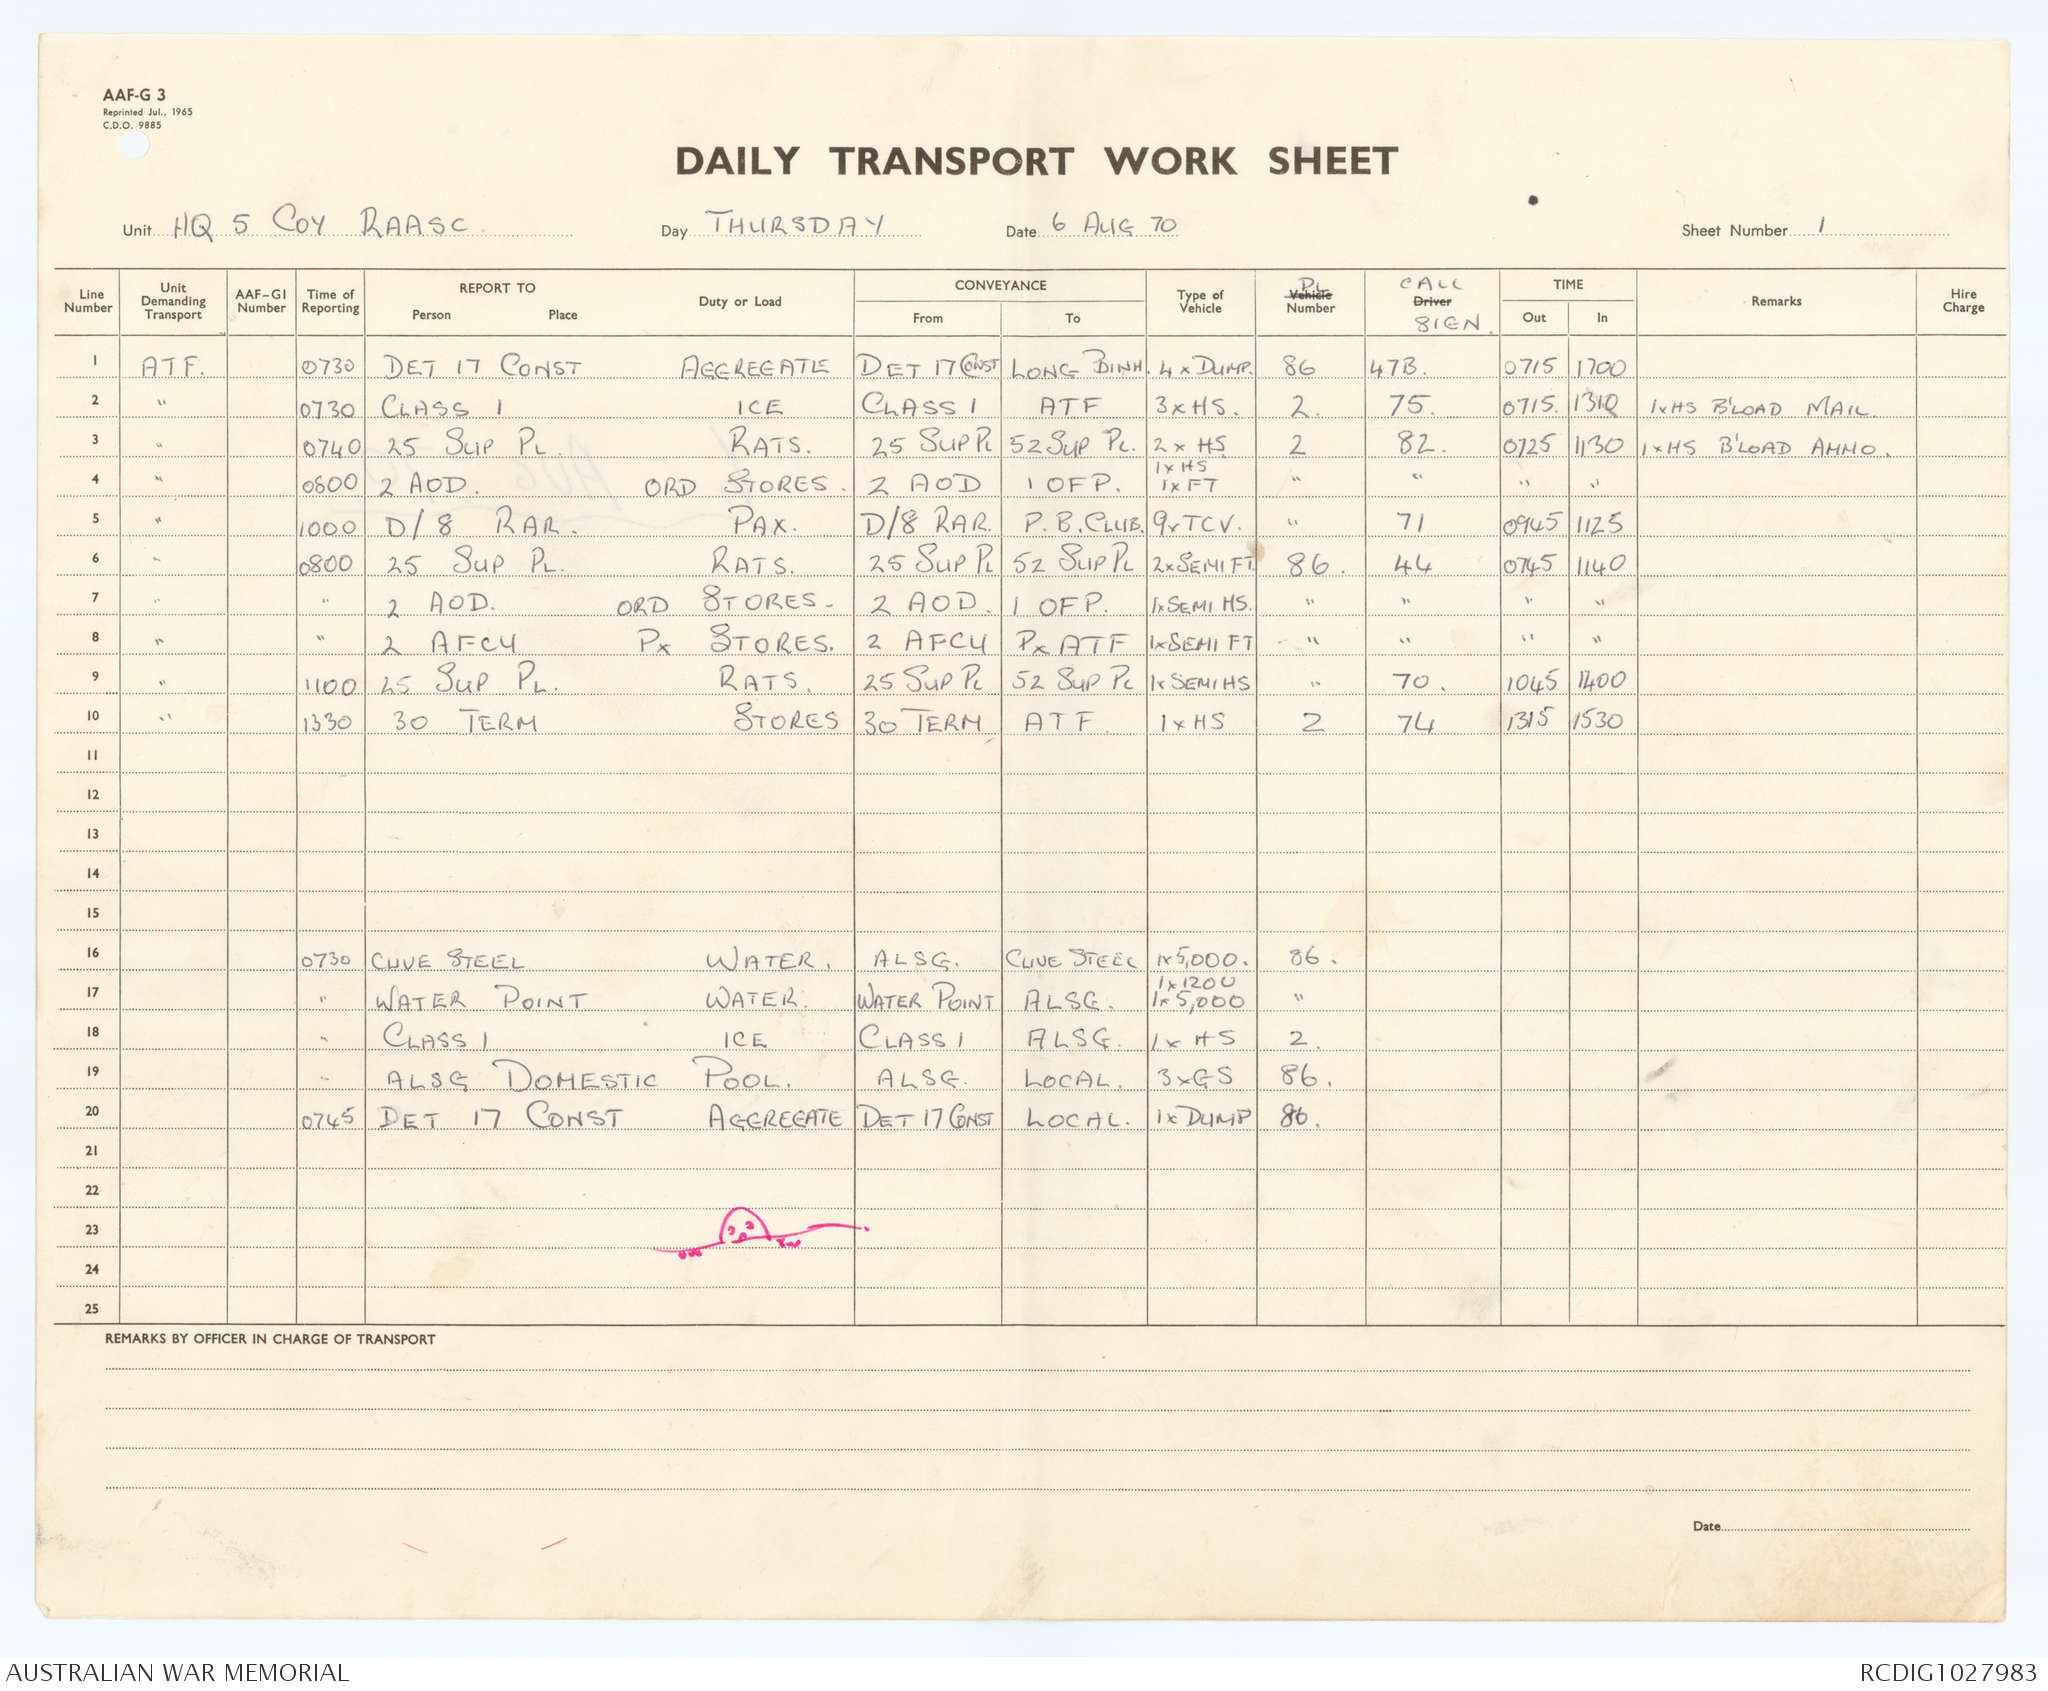 AAF-G 3
Reprinted Jul., 1965
C.D.O. 9885
DAILY TRANSPORT WORK SHEET
Unit HQ 5 COY RAASC. Day THURSDAY Date 6 AUG 70 Sheet Number 1
Line Number Unit Demanding Transport AAF-G1 Number Time of Reporting REPORT TO Person Place Duty or Load CONVEYANCE From To Type of Vehicle Vehicle PL Number Driver CALL SIGN. TIME Out In Remarks Hire Charge
1 ATF. 0730 DET 17 CONST AGGREGATE DET 17 CONST LONG BINH. 4 x DUMP. 86 47B. 0715 1700
2 " 0730 CLASS 1 ICE CLASS 1 ATF 3 x HS. 2. 75. 0715. 1310 1 x HS B'LOAD MAIL.
3 " 0740 25 SUP PL. RATS. 25 SUP PL 52 SUP PL. 2 x HS 2 82. 0725 1130 1 x HS B'LOAD AMMO.
4 " 0800 2 AOD. ORD STORES. 2 AOD 1 OFP. 1 x HS 1 x FT " " " "
5 " 1000 D/8 RAR. PAX. D/8 RAR. P.B. CLUB. 9 x TCV. " 71 0945 1125
6 " 0800 25 SUP PL. RATS. 25 SUP PL 52 SUP PL 2 x SEMI FT. 86. 44 0745 1140
7 " " 2 AOD. ORD STORES- 2 AOD. 1 OFP. 1 x SEMI HS. " " " "
8 " " 2 AFCU PX STORES. 2 AFCU PX ATF 1 x SEMI FT " " " "
9 " 1100 25 SUP PL. RATS. 25 SUP PL 52 SUP PL 1 x SEMI HS " 70. 1045 1400
10 " 1330 30 TERM STORES 30 TERM ATF. 1 x HS 2 74 1315 1530
11
12
13
14
15
16 0730 CLIVE STEEL WATER. ALSG. CLIVE STEEL 1 x 5,000. 86.
17 " WATER POINT WATER. WATER POINT ALSG. 1 x 1200 1 x 5,000 "
18 " CLASS 1 ICE CLASS 1 ALSG. 1 x HS 2.
19 " ALSG DOMESTIC POOL. ALSG. LOCAL. 3 x GS 86.
20 0745 DET 17 CONST AGGREGATE DET 17 CONST LOCAL. 1 x DUMP 86.
21
22
23
24
25
REMARKS BY OFFICER IN CHARGE OF TRANSPORT
Date
AUSTRALIAN WAR MEMORIAL RCDIG1027983